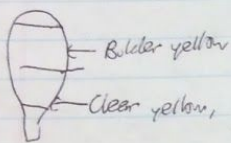 Bolder yellow
Clear yellow,